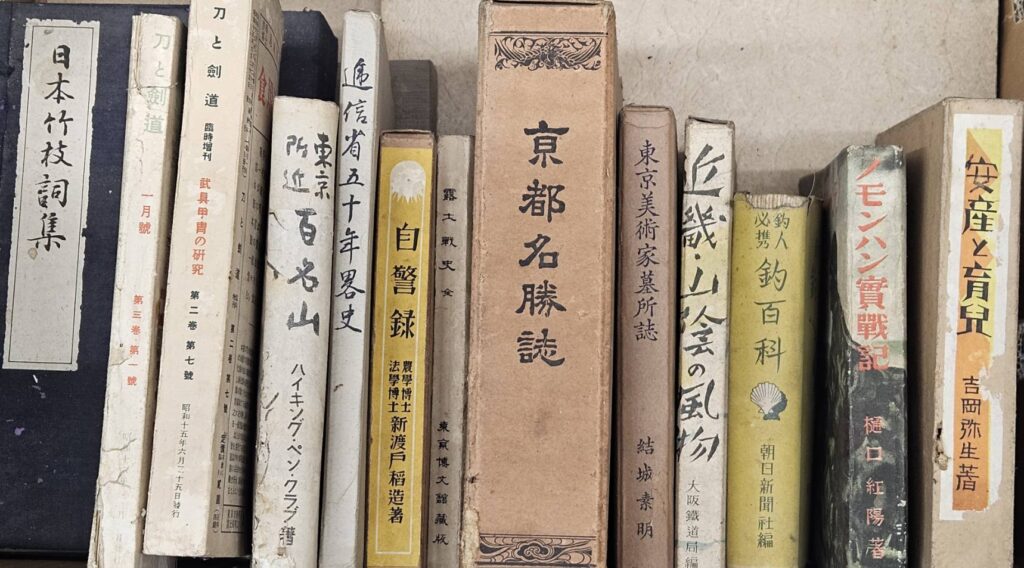 日本竹枝詞集
刀と劍道
一月號
第三巻・第一號
刀と劍道
臨時増刊
武具甲・冑の研究
第二巻 第七號
昭和十五年六月二十五日發行
東京
近所
百名山
ハイキング・ペン・クラブ著
遞信省五十年畧史
自警録
農學博士
法學博士
新渡戸稻造著
露土戰史 全
東京博文館藏版
京都名勝誌
東京美術家墓所誌
結城素明
近畿・山陰の風物
大阪鐵道局編
釣人
必携
釣百科
朝日新聞社編
ノモンハン實戰記
樋口紅陽著
安産と育兒
吉岡弥生著